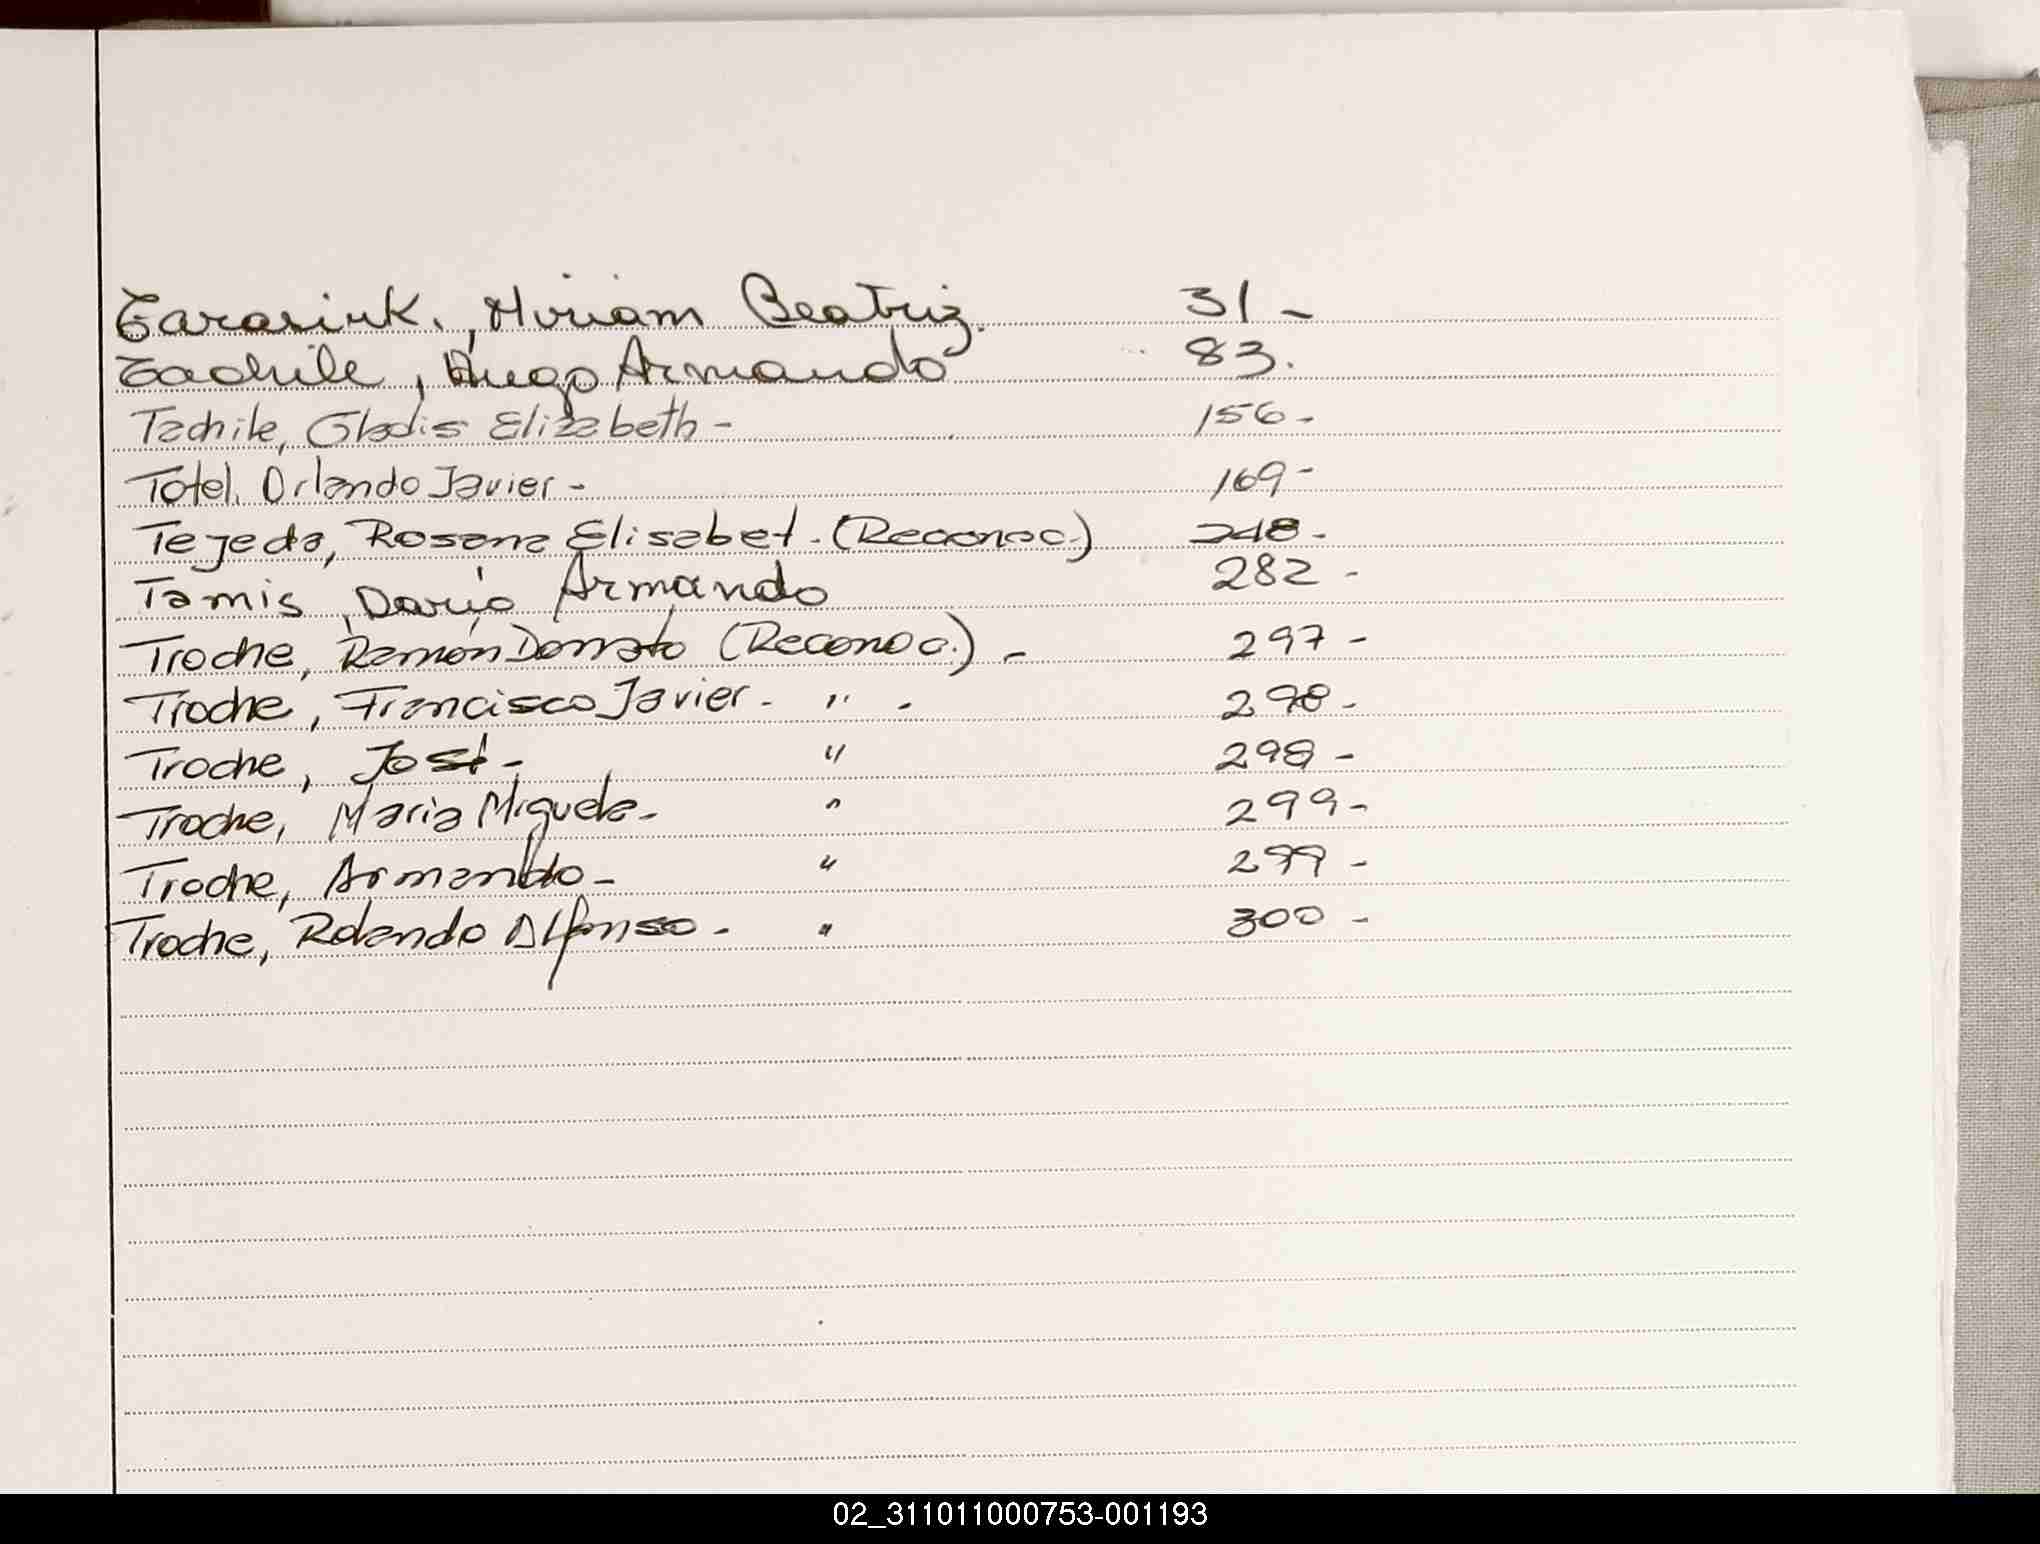 Tarasiuk, Miriam Beatriz. 31 -
Tachile, Hugo Armando 83.
Tachile, Gladis Elizabeth - 156 -
Totel, Orlando Javier - 169 -
Tejeda, Rosana Elisabet. (Reconoc.) 248 -
Tamis, Darío Armando 282 -
Troche, Ramón Donato (Reconoc.) - 297 -
Troche, Francisco Javier - " - 298 -
Troche, José - " 298 -
Troche, Maria Miguela - " 299 -
Troche, Armando - " 299 -
Troche, Rolando Alfonso - " 300 -
02_311011000753-001193